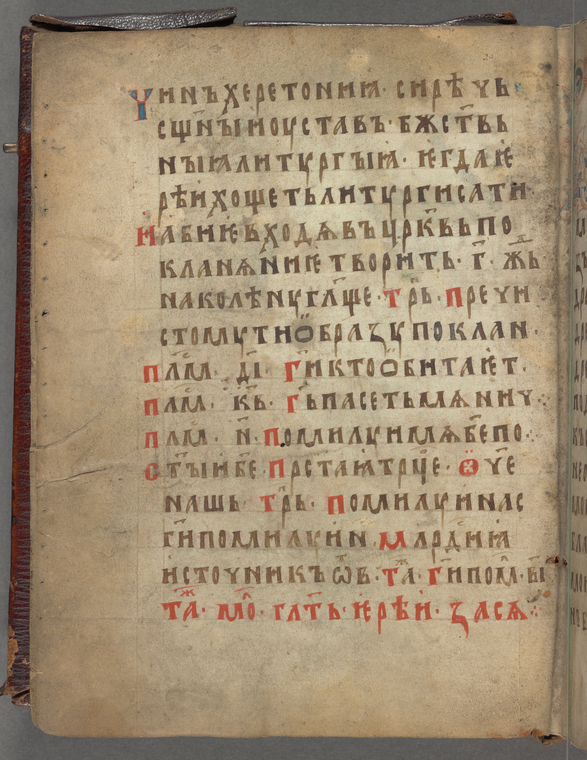 Чинъ херетониꙗ· сирѣчь
сщ҃ныи оуставъ· бж҃ствь
ныꙗ литургыꙗ· ѥгда ѥ
рѣи хощеть литургисати·
И абиѥ входѧ въ цр҃квь по
кланѧниѥ творить· г҃· жⷣь
на колѣну гл҃ще· тр҃ь· Пречи
стому ти ѻбразу поклан·
пⷭ҇лм· дı҃· Ги҃ кто ѻбитаѥт·
пⷭ҇лм· к҃ь· Гь҃ пасеть мѧ нич·
пⷭ҇лм· н҃· Помилуи мѧ бе҃ по·
Ст҃ыи бе҃· Прⷭ҇таꙗ трц҃е· Ѿче
нашь· тр҃ь· Помилуи нас
ги҃ помилуи н· Млрⷭ҇диꙗ
источникъ ѿв· Та· Ги҃ пом· бı
таⷤ· моⷧ· гла҃ть· ѥрѣи· за сѧ·